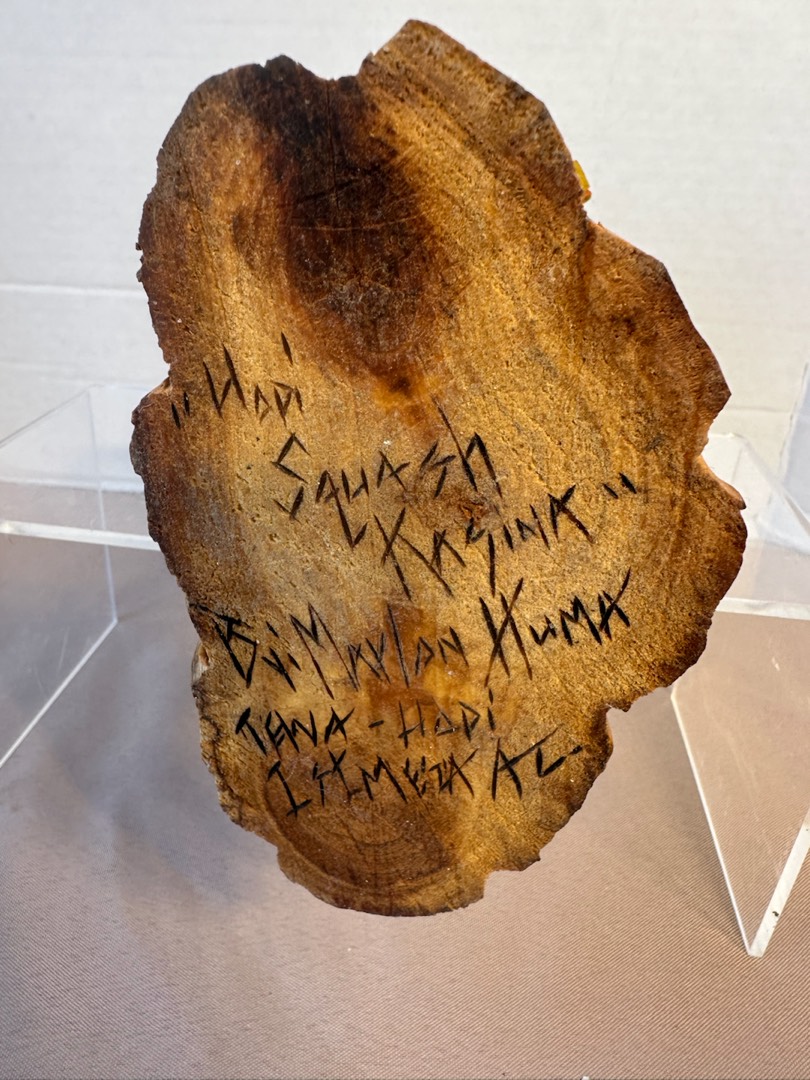 "Hopi
Squash
Kacina"
By: Marlon Huma
Tewa - Hopi
1st Mesa AZ.